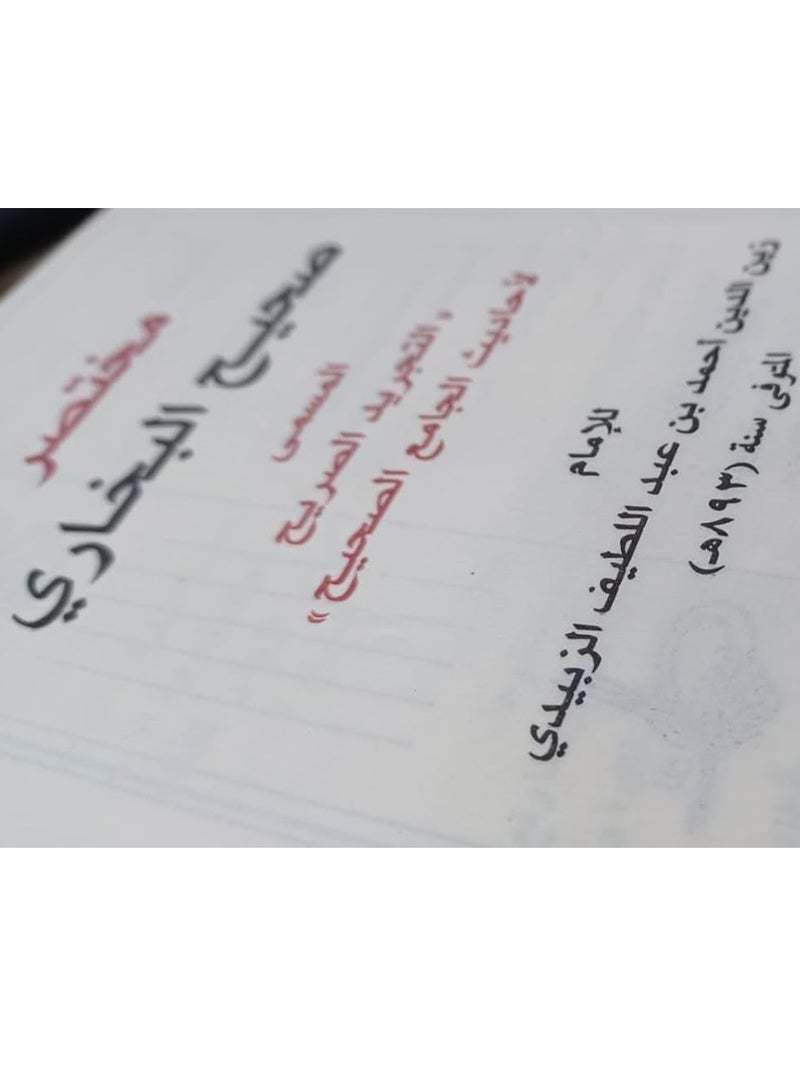 مختصر
صحيح البخاري
المسمى
«التجريد الصريح
لأحاديث الجامع الصحيح»
للإمام
زين الدين أحمد بن عبد اللطيف الزبيدي
المتوفى سنة (٨٩٣هـ)